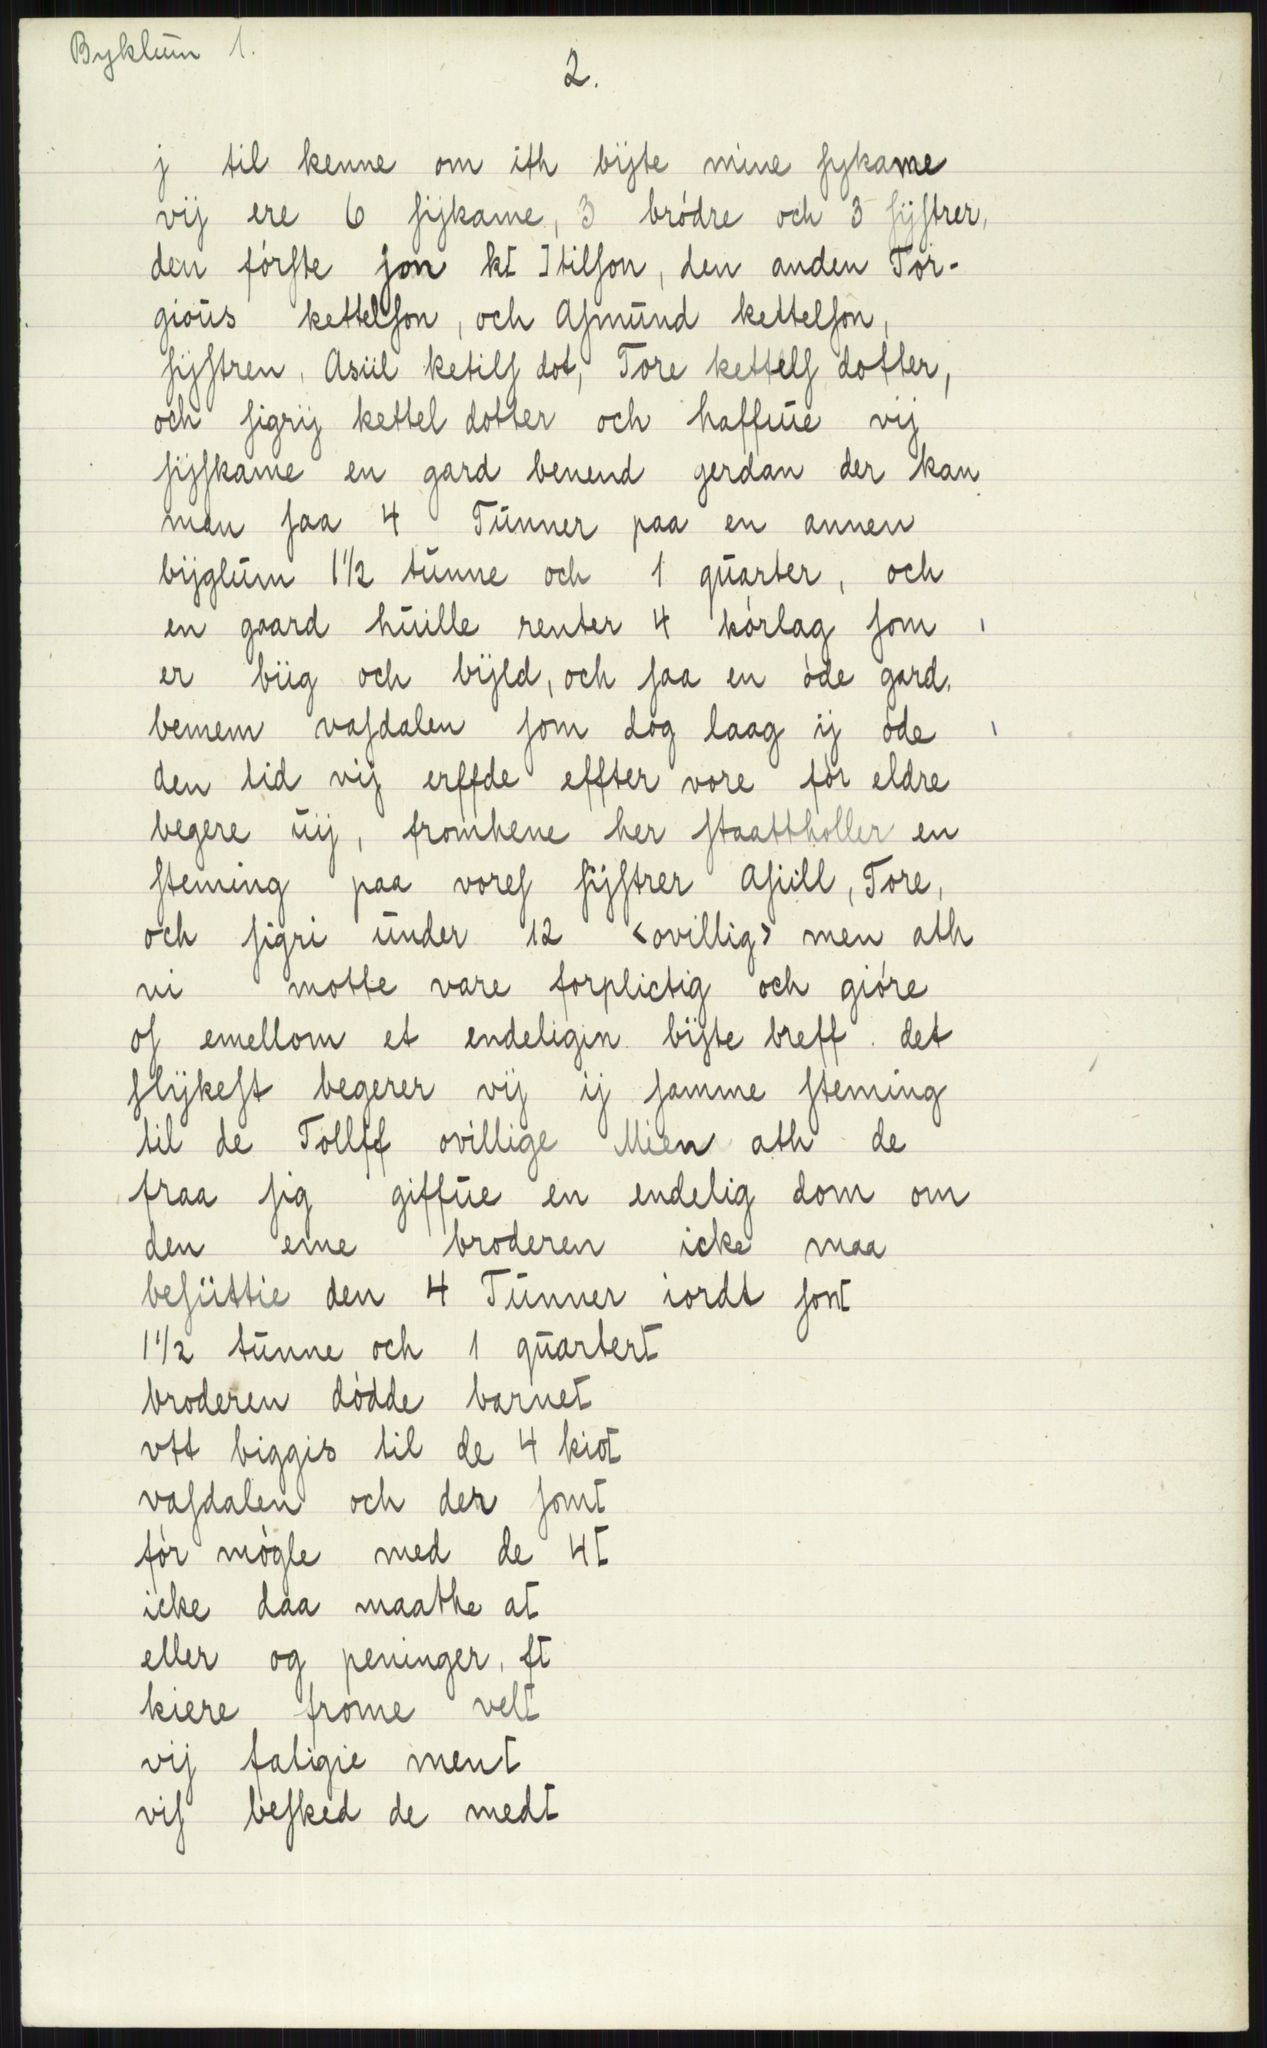 Byklum 1.
2.
j til kenne om ith bÿte mine sykame
vij ere 6 sijkame, 3 brödre och 3 sÿſtrer,
den förſte ſon k[ ]tilſon, den anden Tor-
gioüs kettelſon, och Aſmŭnd kettelſon,
ſijſtren, Asiil ketilſ dot, Tore kettelſ dotter,
och ſigrij kettel dotter och haffŭe vij
ſijſkame en gard benend gerdan der kan
man ſaa 4 Tŭnner paa en annen
bijglŭm 1½ tŭnne och 1 qŭarter, och
en gaard hŭille renter 4 körlag ſom
er büg och bÿld, och ſaa en öde gard,
benem vaſdalen ſom dog laag ij öde
den tid vij erffde effter vore för eldre
begere ŭij, fromhene her ſtaattholler en
ſteming paa voreſ ſÿſtrer Aſiill, Tore,
och ſigri ŭnder 12 <ovillig> men ath
vi motte vare forplictig och giöre
oſ emellom et endeligin bÿte breff. det
ſlÿkeſt begerer vij ij ſamme ſteming
til de Tollff ovillige Mien ath de
fraa ſig giffŭe en endelig dom om
den eme broderen icke maa
beſüttie den 4 Tŭnner iordt ſon[
1½ tŭnne och 1 qŭarter[
broderen dödde barne[
vtt biggis til de 4 kio[
vaſdalen och der ſom[
för mögle med de 4[
icke daa maathe a[
eller og peninger, f[
kiere frome vel[
vij fatigie men[
viſ beſked de med[